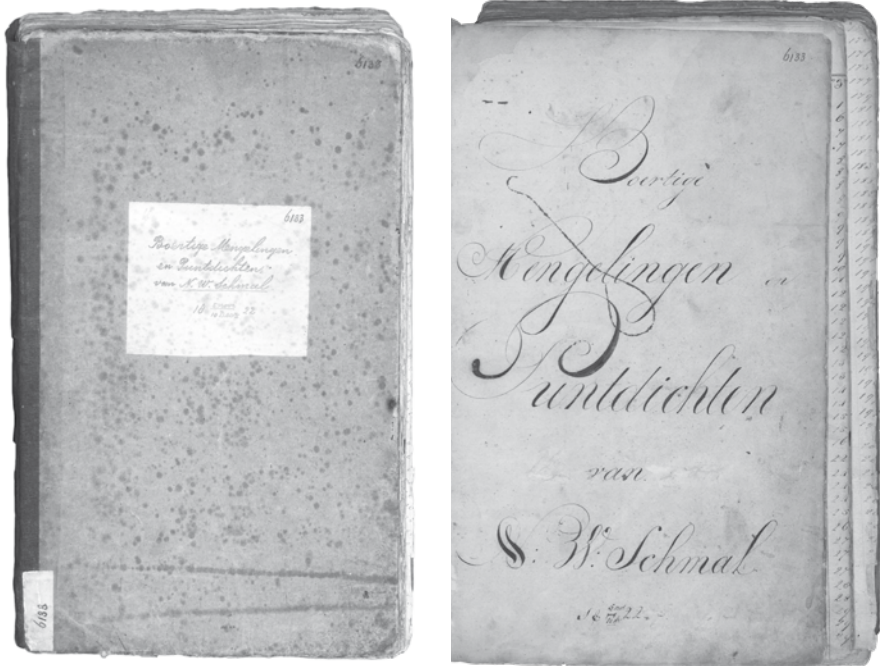 6133
6133
Boertige Mengelingen
en Puntdichten
van N. W. Schmal
6133
6133
Boertige
Mengelingen en
Puntdichten
van
N: W: Schmal